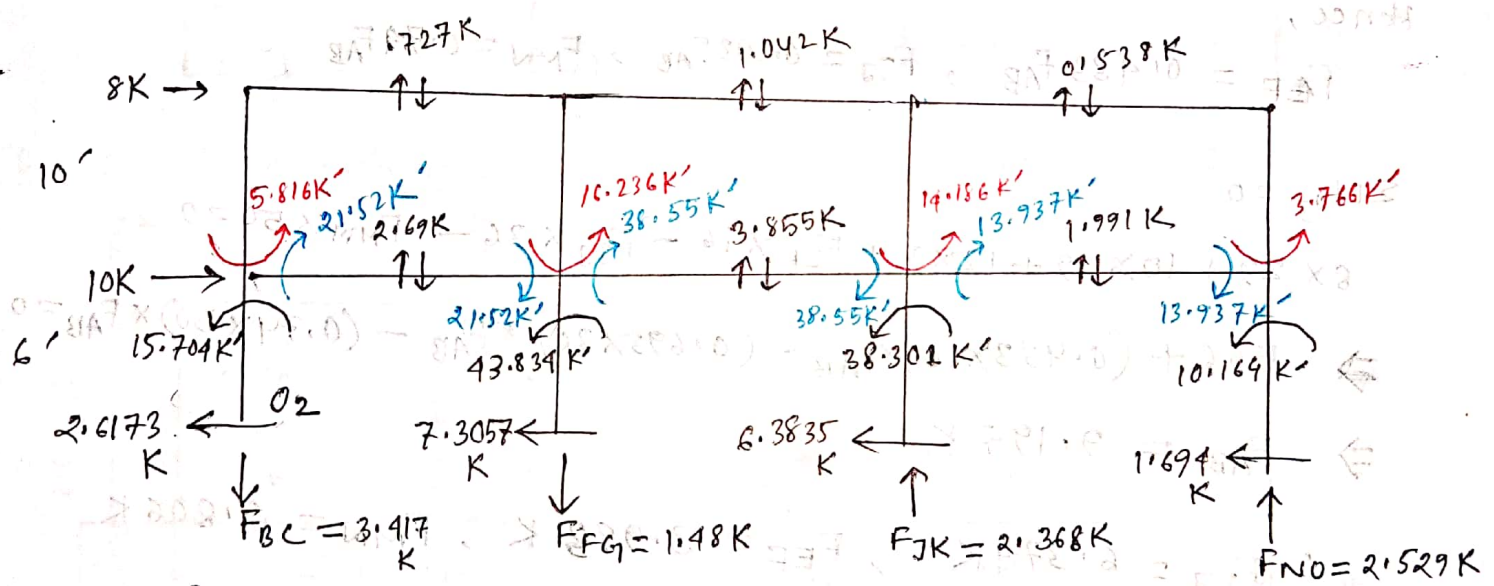 .727K
1.042K
0.538K
8K →
10′
5.816K′
21.52K′
2.69K
16.236K′
38.55K′
3.855K
14.186K′
13.937K′
1.991K
3.766K′
10K →
6′
15.704K′
21.52K′
43.834K′
38.55K′
38.301K′
13.937K′
10.164K′
O2
2.6173 K
7.3057 K
6.3835 K
1.694 K
FBC = 3.417 K
FFG = 1.48K
FJK = 2.368K
FNO = 2.529K